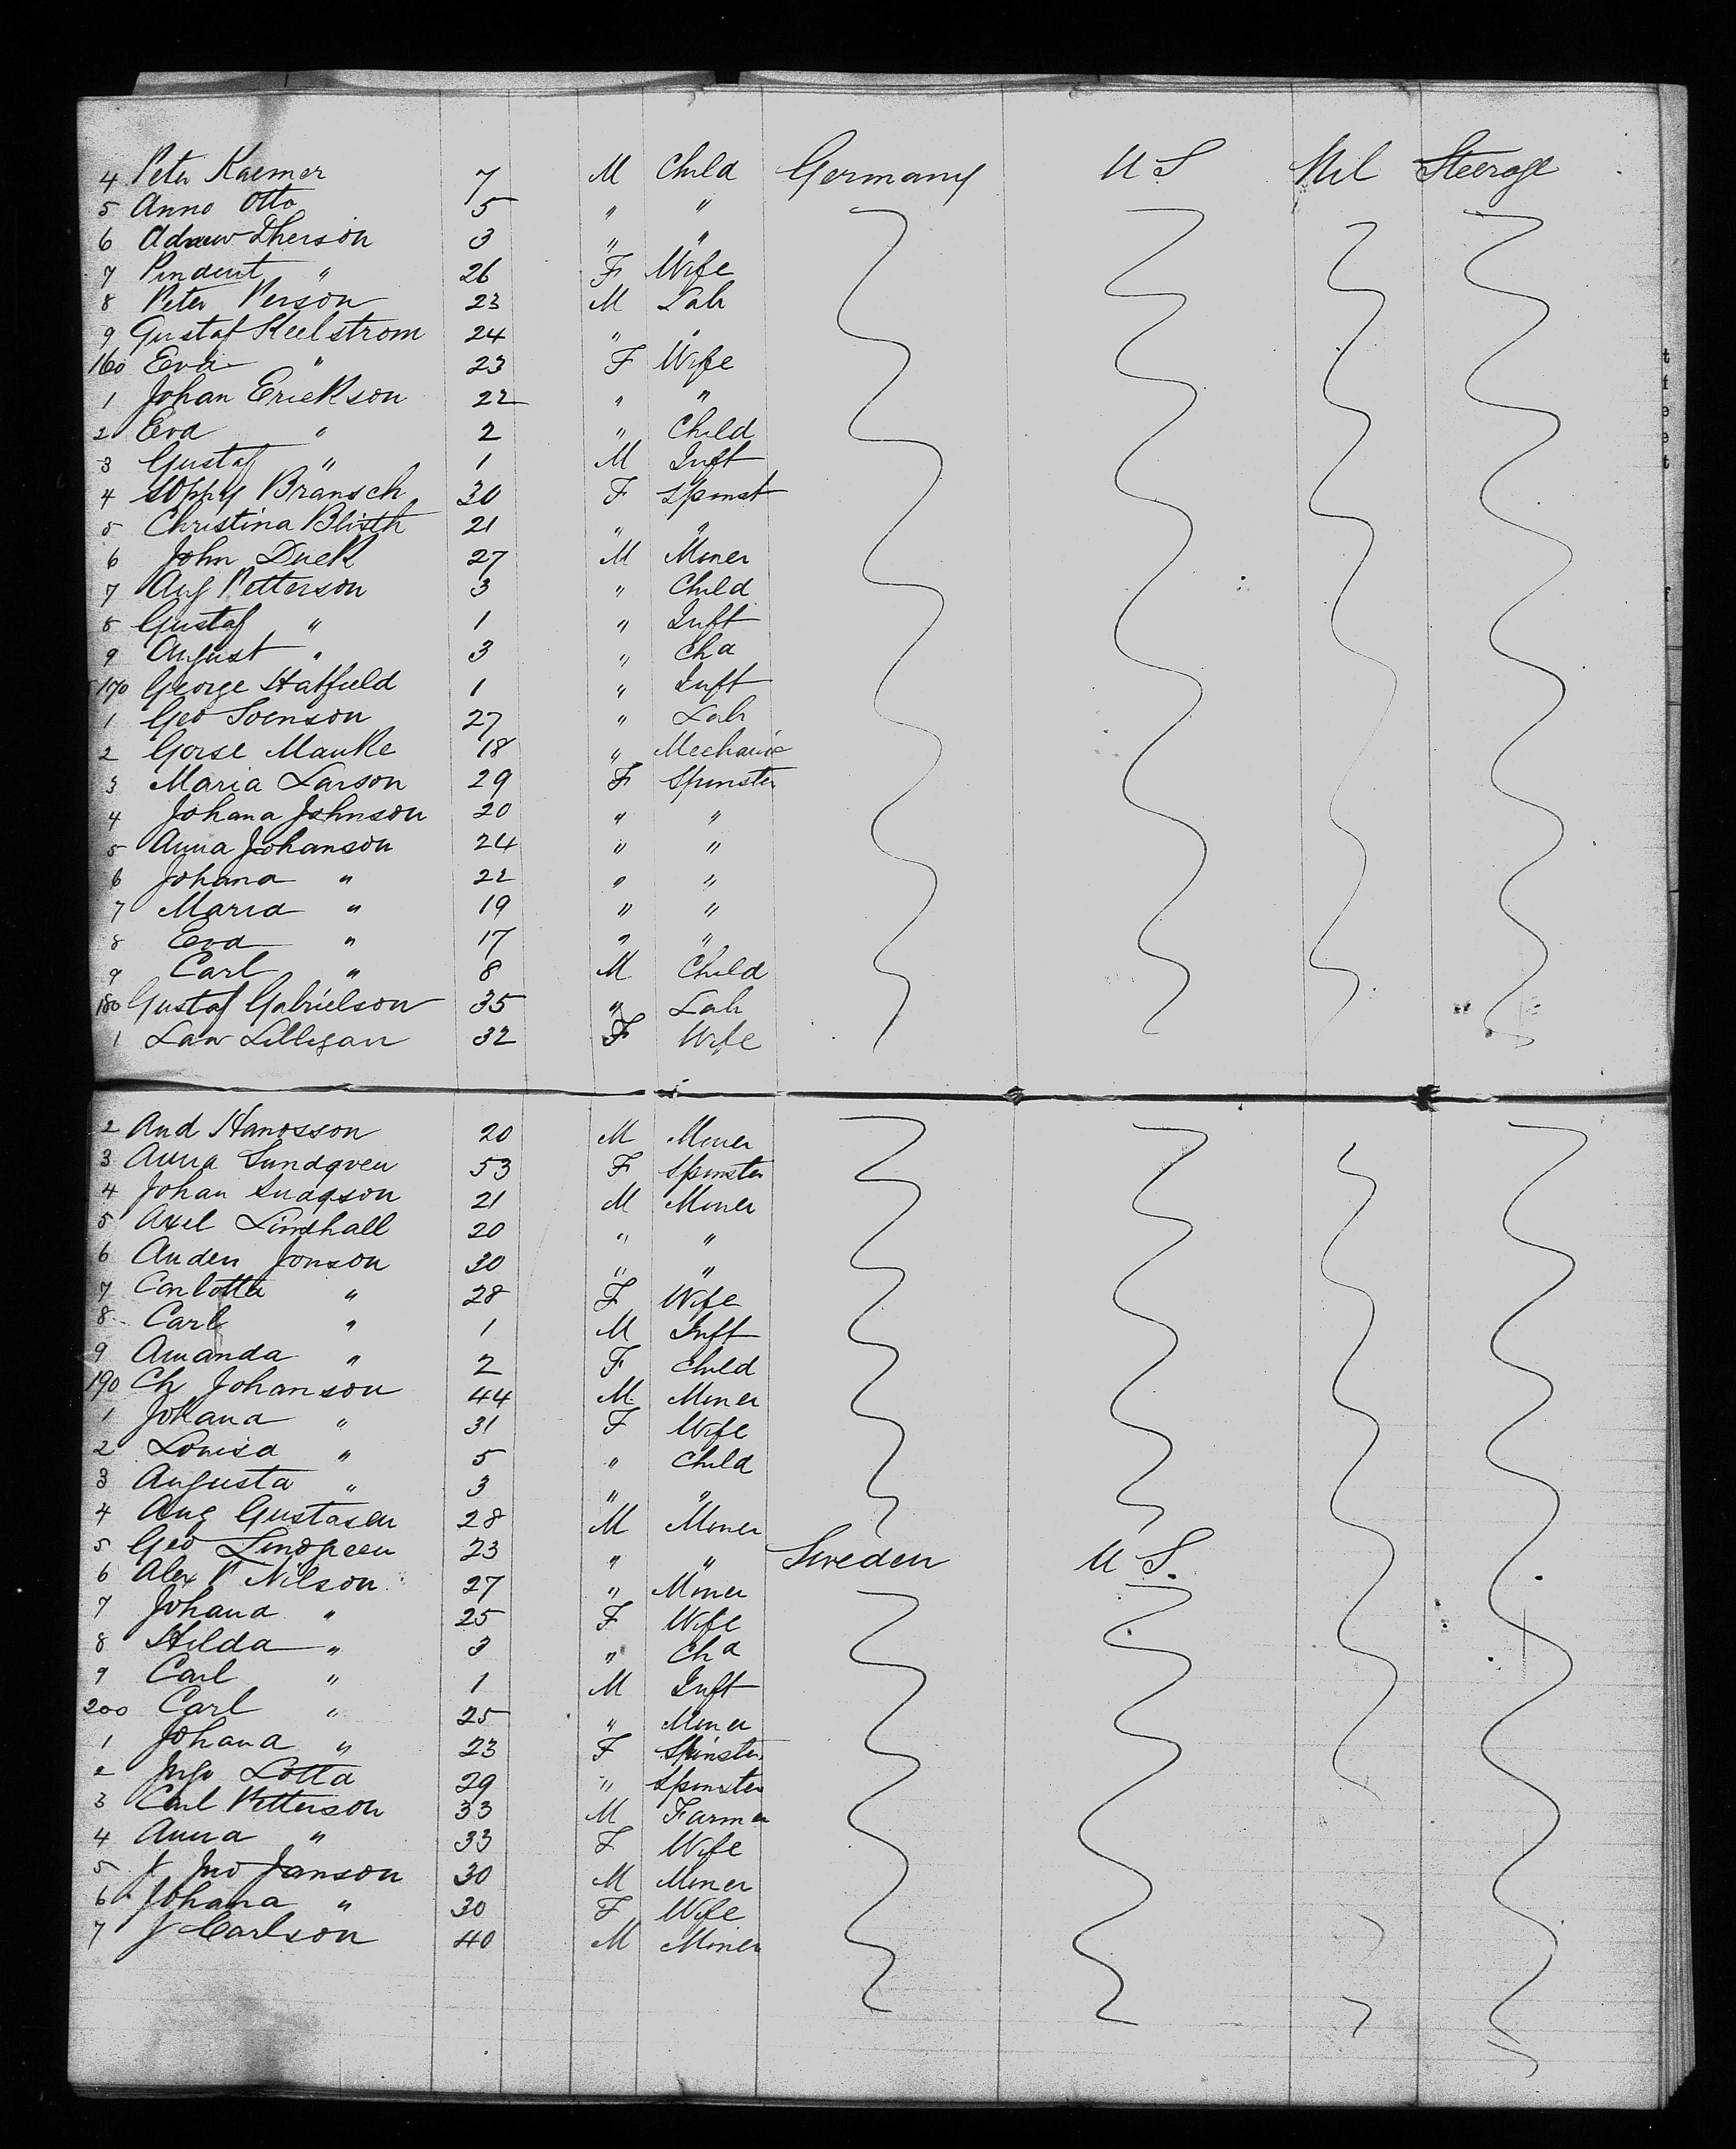 4 Peter Kremer 7 M Child Germany U S Nil Steerage
5 Anno Otto 5 " "
6 Adrew Therson 3 " "
7 " 26 F Wife
8 Peter Person 23 M Lab
9 Gustaf Keelstrom 24 " "
160 Eva " 23 F Wife
1 Johan Erickson 22 " "
2 Eva " 2 " Child
3 Gustaf " 1 M Inft
4 Sophy Bransch 30 F Spinst
5 Christina 21 " "
6 John Duck 27 M Miner
7 Aug Petterson 3 " Child
8 Gustaf " 1 " Inft
9 August " 3 " Chd
170 George Hatfield 1 " Inft
1 Geo Svenson 27 " Lab
2 Gorse Manke 18 " Mechanic
3 Maria Larson 29 F Spinster
4 Johana Johnson 20 " "
5 Anna Johanson 24 " "
6 Johana " 22 " "
7 Maria " 19 " "
8 Eva " 17 " "
9 Carl " 8 M Child
180 Gustaf Gabrielson 35 " Lab
1 Law Lilligan 32 F Wife
2 And Hanosson 20 M Miner
3 Anna 53 F Spinster
4 Johan 21 M Miner
5 Axel Lindhall 20 " "
6 Anden Jonson 30 " "
7 Carlotta " 28 F Wife
8 Carl " 1 M Inft
9 Amanda " 2 F Child
190 Ch Johanson 44 M Miner
1 Johana " 31 F Wife
2 Louisa " 5 " Child
3 Augusta " 3 " "
4 Aug Gustasen 28 M Miner
5 Geo Lindgreen 23 " " Sweden U S.
6 Alex P Nilson 27 " Miner
7 Johana " 25 F Wife
8 Hilda " 3 " Chd
9 Carl " 1 M Inft
200 Carl " 25 " Miner
1 Johana " 23 F Spinster
2 Lotta 29 " Spinster
3 Carl Petterson 33 M Farmer
4 Anna " 33 F Wife
5 J Jno Janson 30 M Miner
6 Johana " 30 F Wife
7 J Carlson 40 M Miner